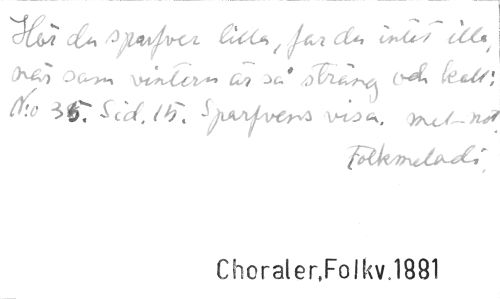 Hör du sparfver lilla, far du intet illa,
när som vintern är så sträng och kall:
N:o 35. Sid. 15. Sparfvens visa. met-not.
Folkmelodi.
Choraler,Folkv.1881